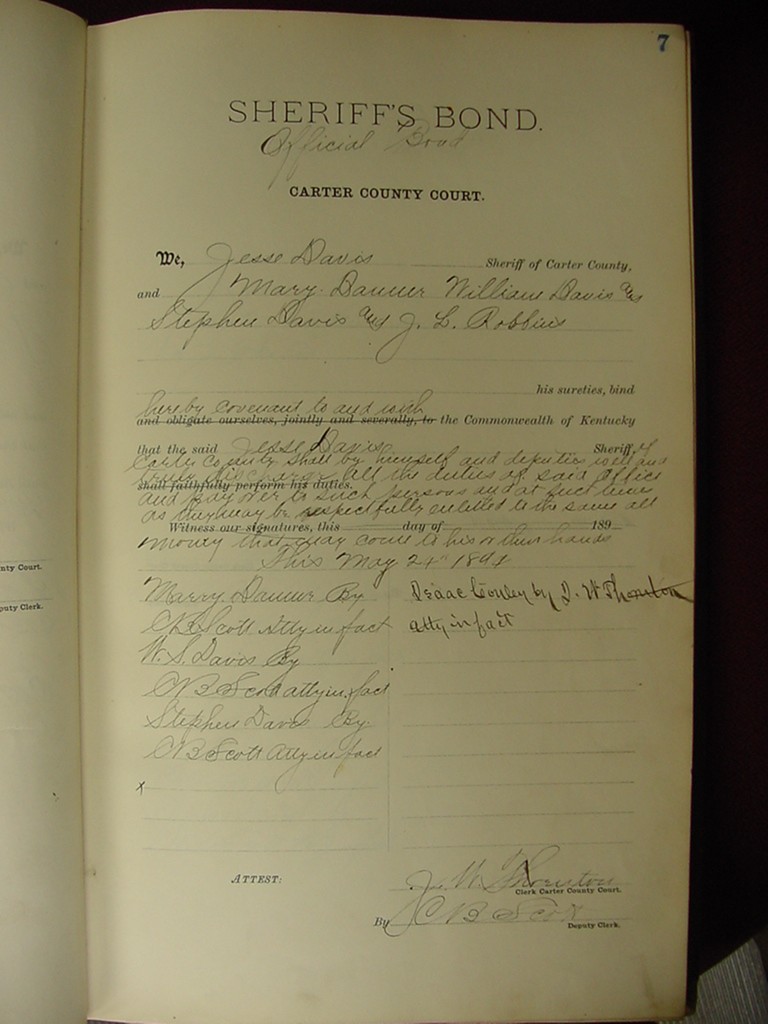 7
SHERIFF'S BOND.
Official Bond
CARTER COUNTY COURT.
We, Jesse Davis Sheriff of Carter County,
and Mary Danner William Davis and
Stephen Davis and J. L. Robbins
his sureties, bind
hereby covenant to and with
and obligate ourselves, jointly and severally, to the Commonwealth of Kentucky
that the said Jesse Davis Sheriff, of
Carter County shall by himself and deputies well and
discharge all the duties of said office
shall faithfully perform his duties.
and pay over to such persons and at such time
as they may be respectfully entitled to the same all
Witness our signatures, this day of 189
money that may come to his or their hands
This May 24" 1894
Marry Danner By
C B Scott Atty in fact
W. S. Davis By
C B Scott atty in fact
Stephen Davis By
C B Scott Atty in fact
x
Isaac Conley by J. W Thornton
atty in fact
ATTEST:
J. W. Thornton
Clerk Carter County Court.
By C B Scott
Deputy Clerk.
nty Court.
puty Clerk.